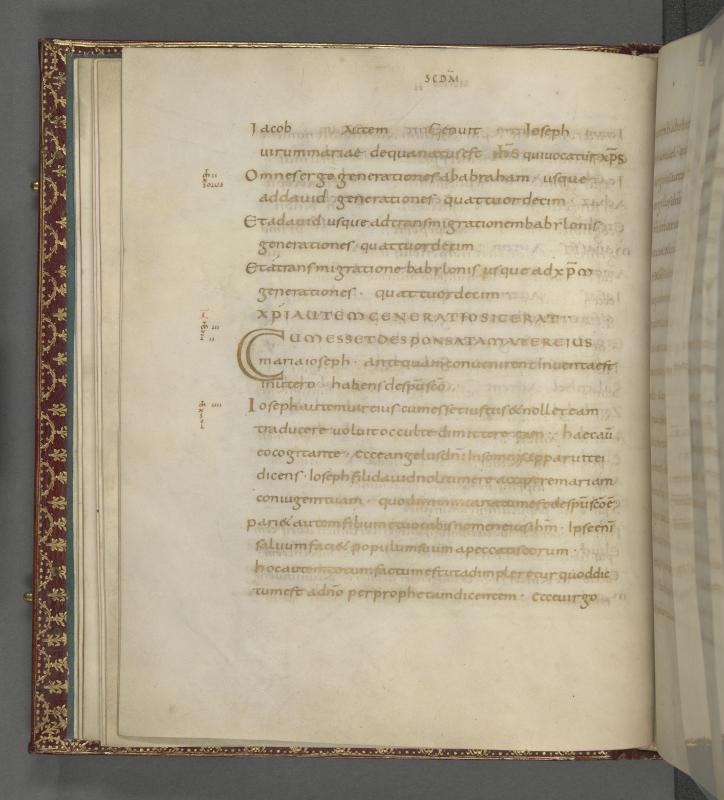 SCDM̅
Iacob autem Genuit Ioseph
uirum mariae dequanatusest ih̅s quiuocatur xp̅s
Omnesergogenerationesababraham · usque
addauid generationes quattuordecim ·
Etadauid usque adtransmigrationembabylonis
generationes quattuordecim
Etatransmigratione babylonis usque ad xp̅m
generationes · quattuordecim
XP̅I AUTEM GENERATIO SIC ERAT
CUM ESSET DESPONSATA MATER EIUS
maria ioseph · antequamconuenirent inuentaest
inutero habens despu̅sc̅o
Ioseph autem uir eius cumesset iustus & nollet eam
traducere uoluit occulte dimittere eam · haecau̅
eo cogitante · ecce angelus dn̅i insomnis apparuit ei
dicens · Ioseph fili dauid noli timere accipere mariam
coniugem tuam · quod enim in ea natum est despu̅sc̅oe̅
pari& autem filium et uocabis nomen eius ih̅m · Ipse eni̅
saluum faci& populum suum a peccatis eorum ·
hoc autem totum factum est ut adimpleretur quod dic
tum est a dn̅o per prophetam dicentem · ecce uirgo